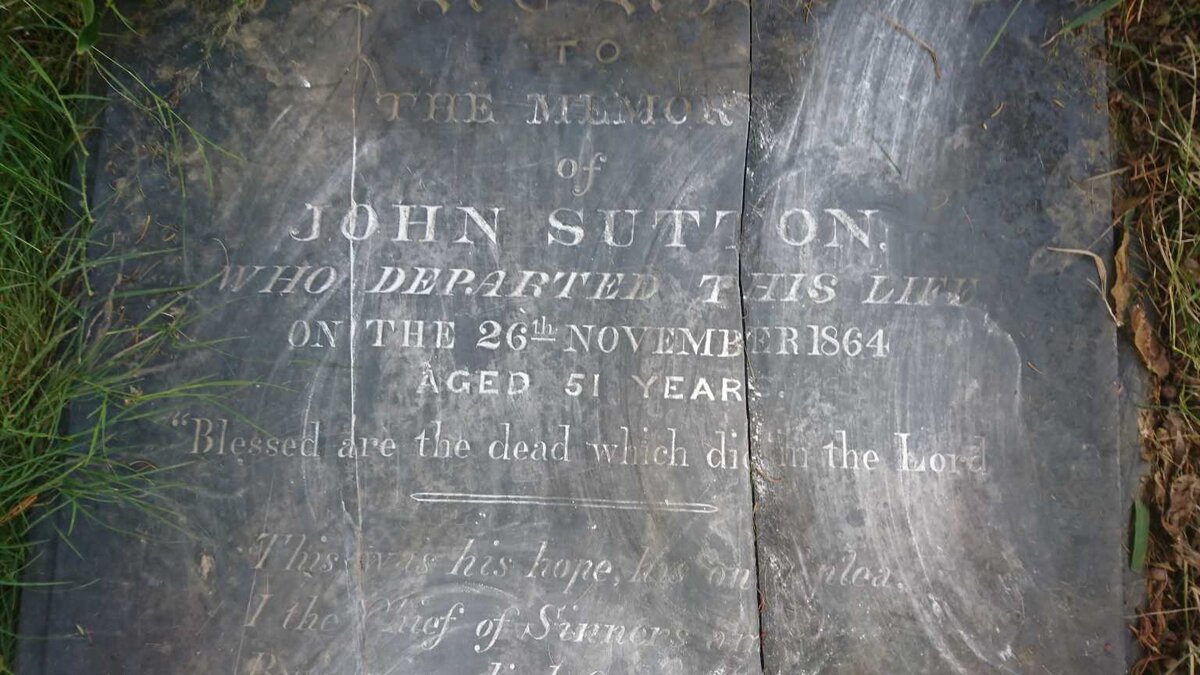 TO
THE MEMOR
of
JOHN SUTTON,
WHO DEPARTED THIS LIFE
ON THE 26th NOVEMBER 1864
AGED 51 YEAR
"Blessed are the dead which die in the Lord
This was his hope, his only plea,
I the Chief of Sinners am
died